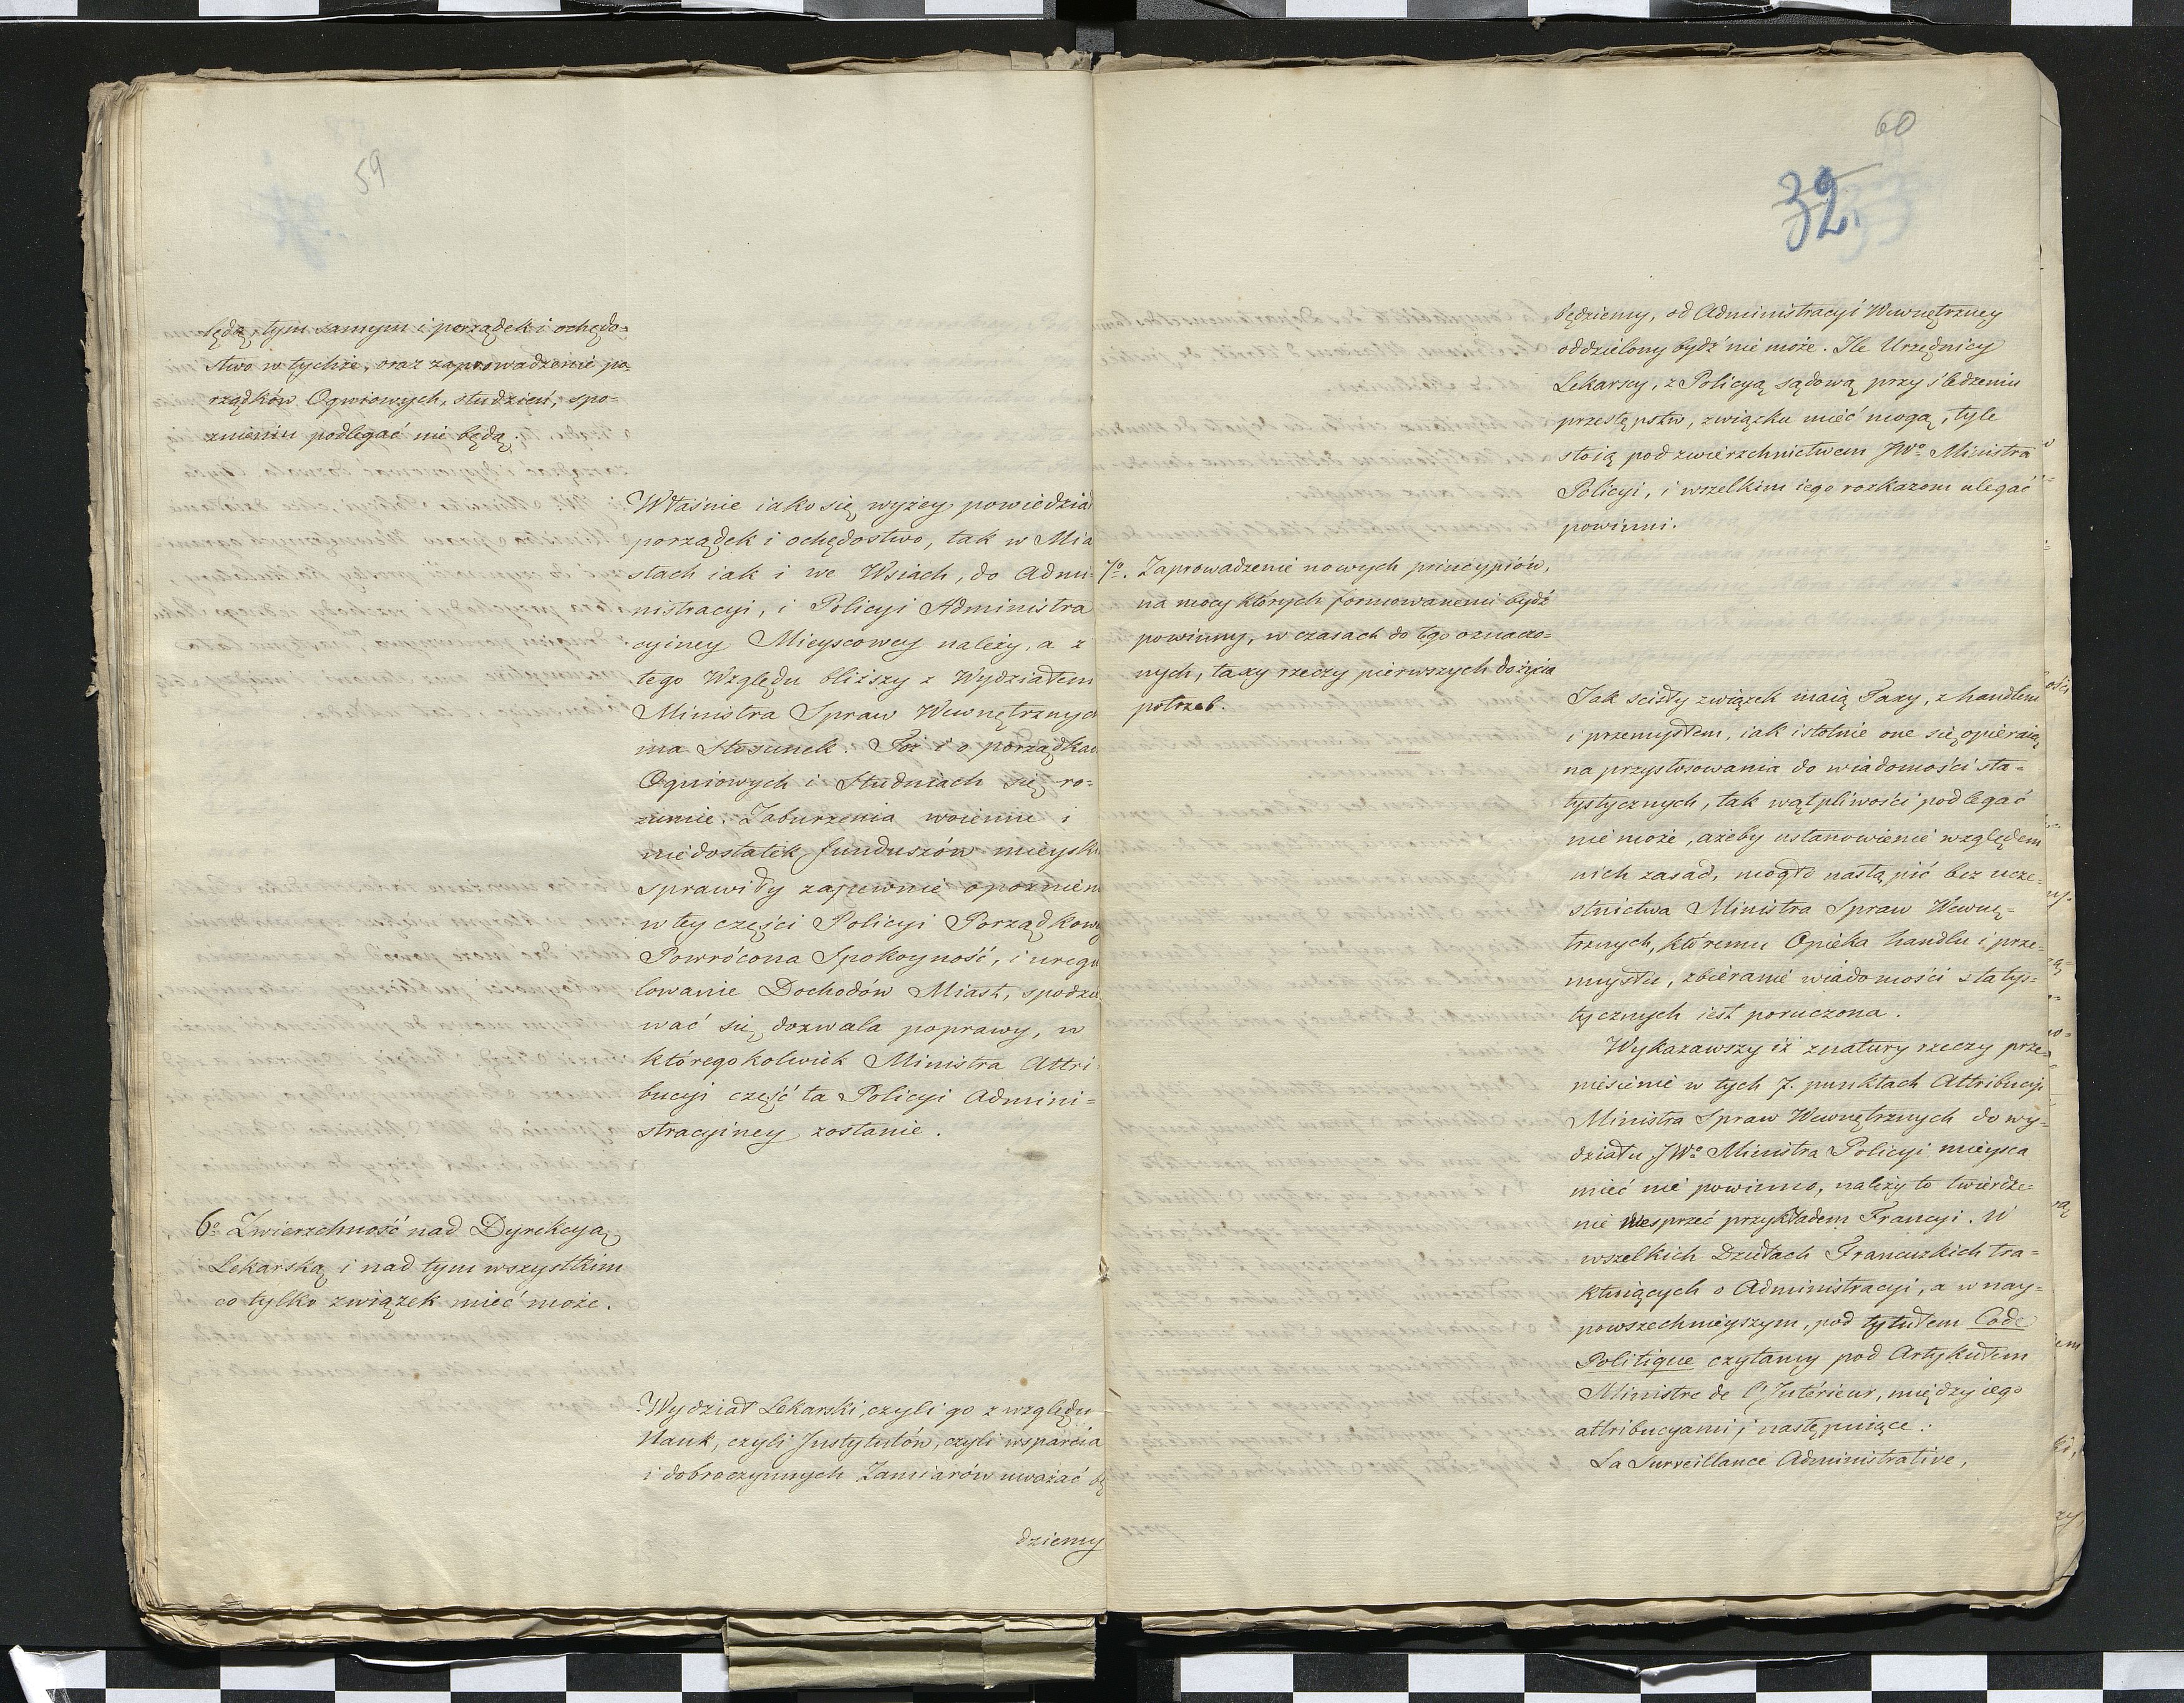 59
będą, tym samym i porządek i ochędo=
stwo w tychże, oraz zaprowadzenie po=
rządków Ogniowych, studzień, spo=
znieniu podlegać nie będą.
Właśnie iako się wyżey powiedzia
porządek i ochędostwo, tak w Mia
stach iak i we Wsiach, do Admi=
nistracyi, i Policyi Administra
cyiney Mieyscowey należy, a z
tego Względu bliższy z Wydziałem
Ministra Spraw Wewnętrznych
ma Stosunek. Toż i o porządkac
Ogniowych i Studniach się ro=
zumie. Zaburzenia woienne i
niedostatek funduszów mieyski
sprawiły zapewnie opoznieni
w tey części Policyi Porządkowey
Powrócona Spokoyność, i uregu
lowanie Dochodów Miast, spodzie
wać się dozwala poprawy, w
któregokolwiek Ministra Attri=
bucyi część ta Policyi Admini=
stracyiney zostanie.
6o Zwierzchność nad Dyrekcyą
Lekarską i nad tym wszystkim
co tylko związek mieć może.
Wydział Lekarski, czyli go z względu
Nauk, czyli Instytutów, czyli wsparcia
i dobroczynnych Zamiarów uważać bę
dziemy
60
32
będziemy, od Administracyi Wewnętrzney
oddzielony bydź nie może. Ile Urzędnicy
Lekarscy, z Policyą sądową przy śledzeniu
przestępstw, związku mieć mogą, tyle
stoią pod zwierzchnictwem JWo Ministra
Policyi, i wszelkim iego rozkazom ulegać
powinni.
7o. Zaprowadzenie nowych princypiów,
na mocy których formowanemi bydź
powinny, w czasach do tego oznaczo=
nych, taxy rzeczy pierwszych do życia
potrzeb.
Jak scisły związek maią Taxy, z handlem
i przemysłem, iak istotnie one się opieraią
na przystosowania do wiadomości sta=
tystycznych, tak wątpliwości podlegać
nie może, ażeby ustanowienie względem
nich zasad, mogło nastąpić bez ucze=
stnictwa Ministra Spraw Wewnę=
trznych, któremu Opieka handlu i prze=
mysłu, zbieranie wiadomości statys=
tycznych iest poruczona.
Wykazawszy iż z natury rzeczy prze=
niesienie w tych 7. punktach Attribucyi
Ministra Spraw Wewnętrznych do wy=
działu JWo Ministra Policyi mieysca
mieć nie powinno, należy to twierdze=
nie wesprzeć przykładem Francyi. W
wszelkich Dziełach Francuzkich tra=
ktuiących o Administracyi, a w nay=
powszechnieyszym, pod tytułem Code
Politique czytamy pod Artykułem
Ministre de l'Intérieur, między iego
attribucyami, następuiące:
La Surveillance Administrative,